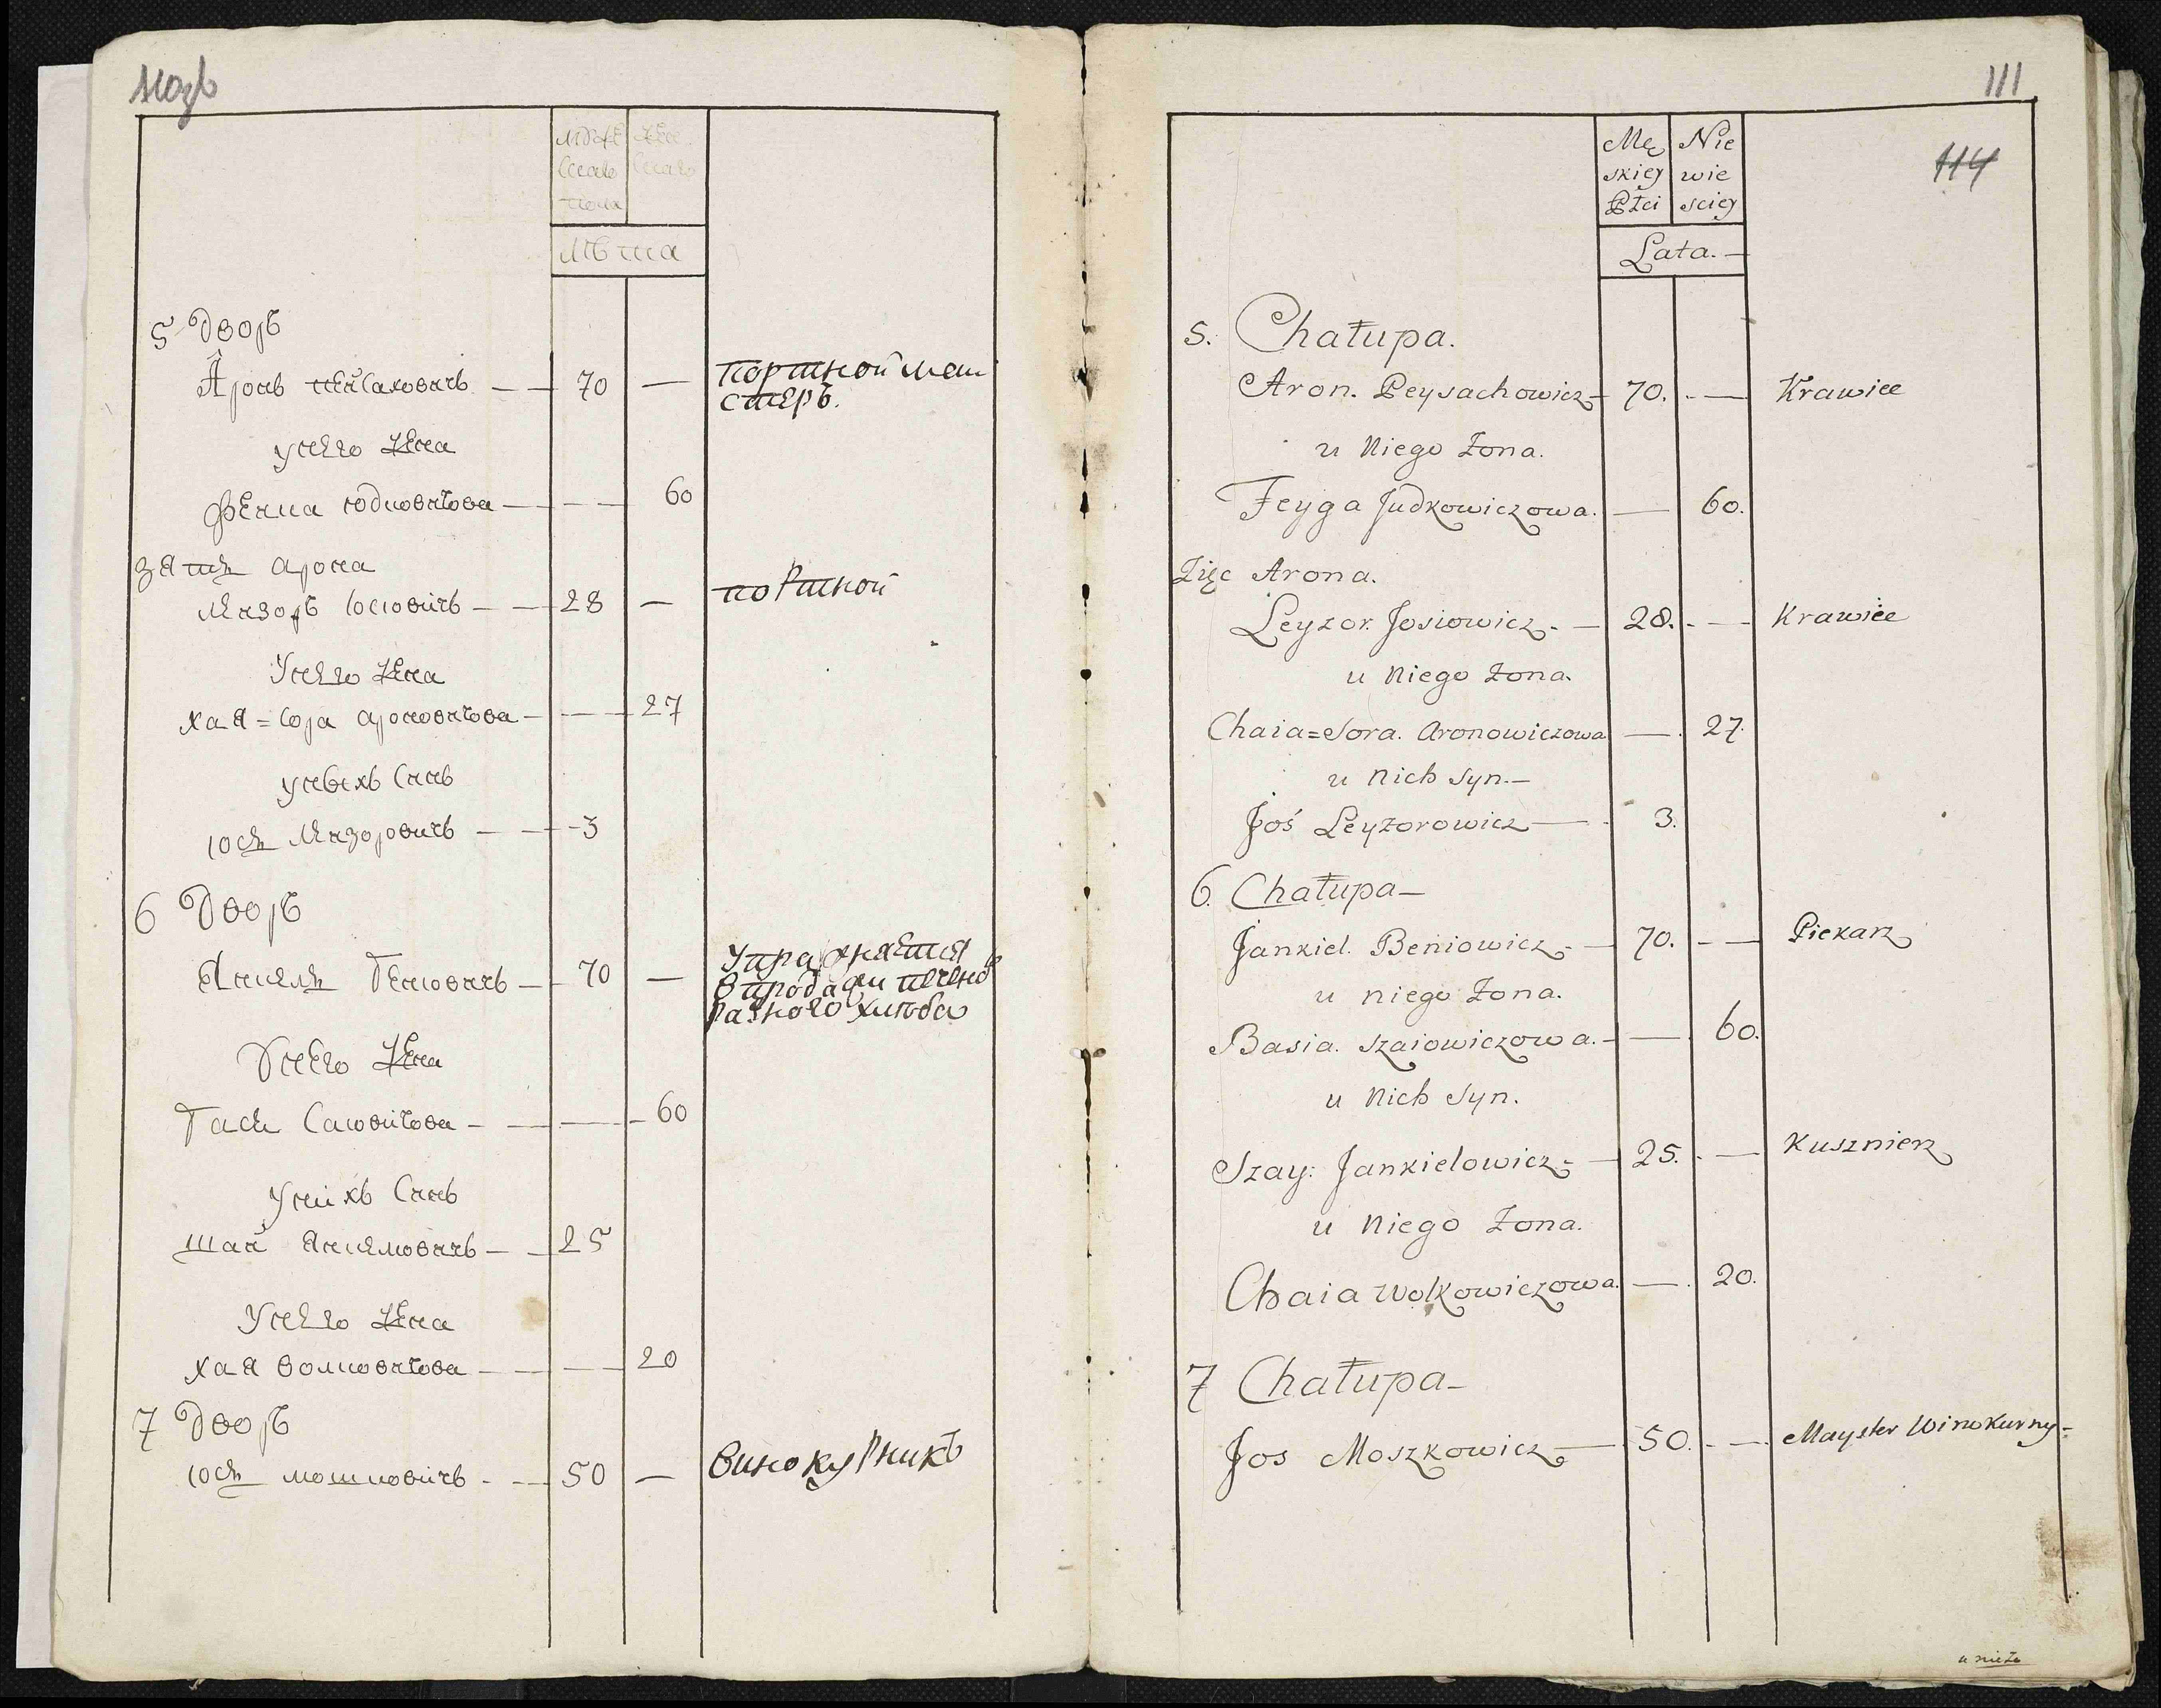 110об
муже
скаго
пола
жен
скаго
лѣта
5 Дворъ
Аронъ пейсаховичъ — — 70 — портной маи
стеръ.
у него жена
фейга юдковичова — — — 60
зять арона
лейзоръ іосіовичъ — — 28 — портной
У него жена
хая=сора ароновичова — — 27
у нихъ сынъ
іось лейзоровичъ — — 3
6 Дворъ
Янкель Беніовичъ — 70 — упражняется
в продажи печено
разного хлѣба
У него жена
Бася Шаіовичова — — — 60
У нихъ сынъ
шай янкелювичъ — — 25
У него жена
хая волковичова — — — 20
7 Дворъ
іось мошковичъ — — 50 — винокурникъ
111
114
Mę
skiey
Płci
Nie
wie
sciey
Lata. —
5. Chałupa.
Aron. Peysachowicz — 70. — Krawiec
u Niego Żona.
Feyga Judkowiczowa. — 60.
Zięc Arona.
Leyzor. Josiowicz. — 28. — Krawiec
u Niego Żona.
Chaia=Sora. Aronowiczowa — 27.
u Nich Syn. —
Joś Leyzorowicz — 3.
6. Chałupa —
Jankiel. Beniowicz. — 70. — Piekarz
u niego Żona.
Basia. Szaiowiczowa. — — 60.
u Nich Syn.
Szay: Jankielowicz. — 25. — Kusznierz
u Niego Żona.
Chaia Wolkowiczowa. — 20.
7 Chałupa —
Jos Moszkowicz — 50. — Mayster Winokurny =
u nieżo